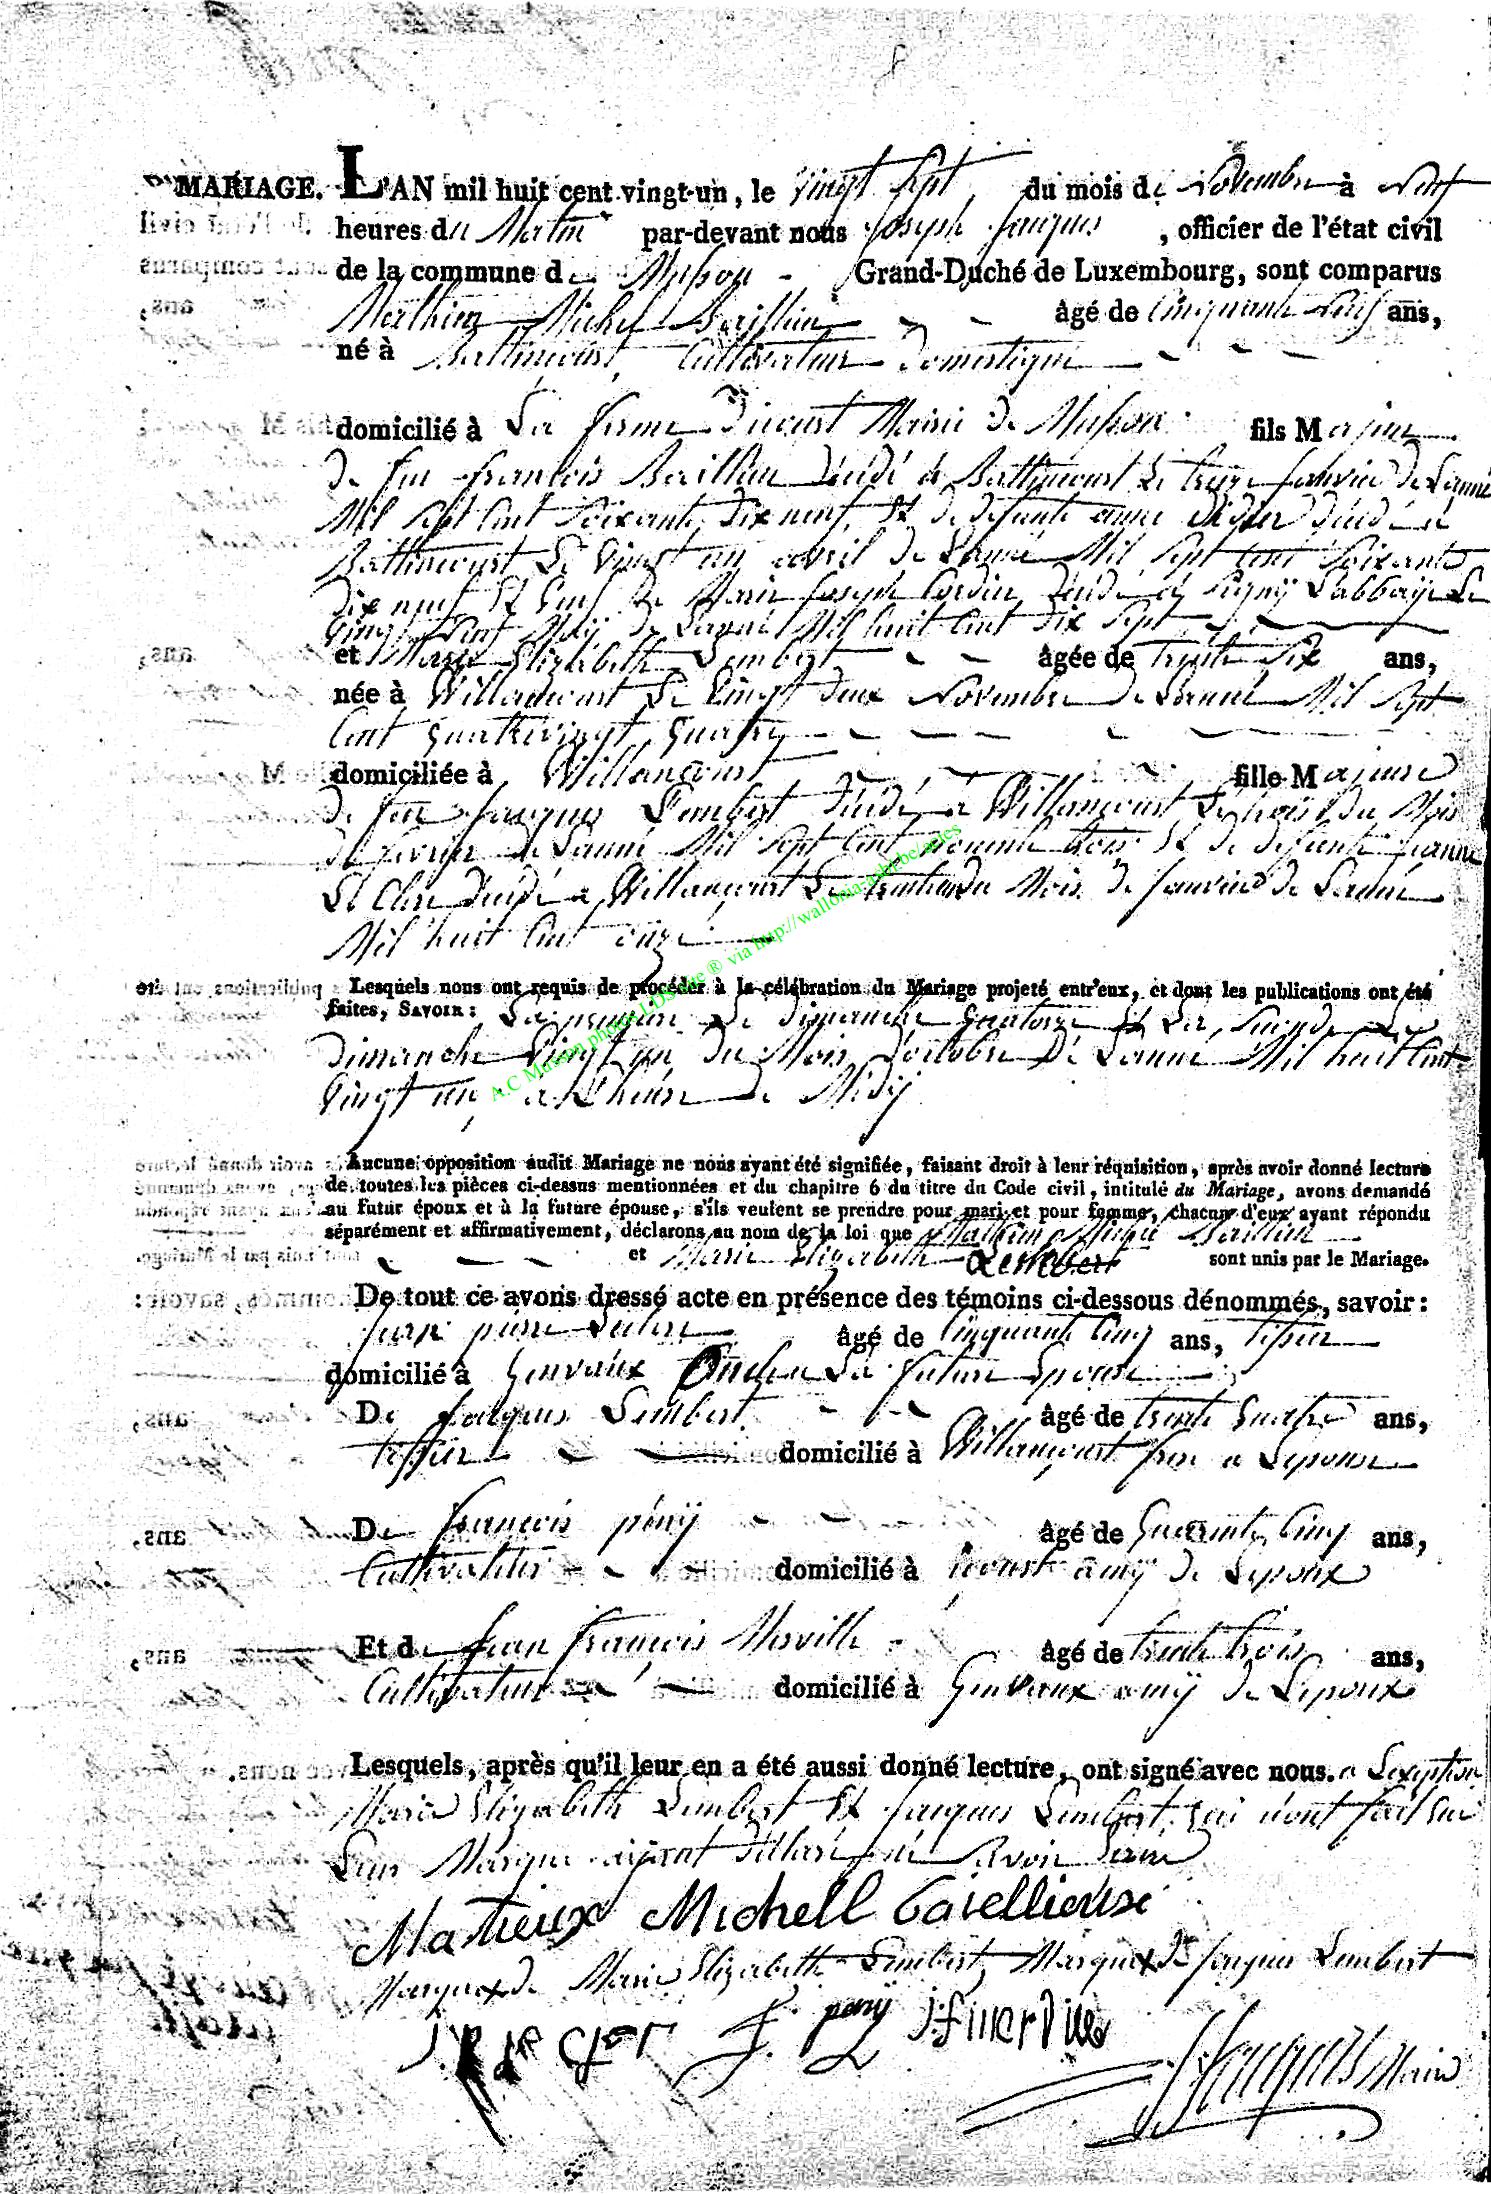 MARIAGE. L'AN mil huit cent vingt-un, le vingt sept du mois de Novembre à neuf
heures du Matin par-devant nous Joseph Jacques, officier de l'état civil
de la commune de Musson - Grand-Duché de Luxembourg, sont comparus
Mathieu Michel Baillieu âgé de Cinquante neuf ans,
né à Battincourt, Cultivateur domestique
domicilié à La ferme Mairie de Musson fils Majeur
de feu françois Baillieu décédé à Battincourt Le treize Janvier de L'année
Mil Sept Cent Soixante dix neuf, Et de defunte anne Didier décédé à
Battincourt Le Vingt un avril de L'année Mil Sept Cent Soixante
dix neuf Et Veuf de Marie Joseph décédé à Signÿ L'abbaÿe Le
Vingt neuf Maÿ de L'année Mil huit Cent dix Sept
et Marie Elizabeth Lembert âgée de trente Six ans,
née à Willancourt Le Vingt deux Novembre de L'année Mil Sept
Cent quatrevingt quatre
domiciliée à Willancourt fille Majeure
de feu Jacques Lembert décédé à Willancourt Le trois du Mois
de fevrier de L'année Mil Sept Cent nonante trois Et de defunte Jeanne
décédé à Willancourt Le du Mois de Janvier de L'année
Mil huit Cent onze
Lesquels nous ont requis de procéder à la célébration du Mariage projeté entr'eux, et dont les publications ont été
faites, SAVOIR : La premiere Le dimanche quatorze Et La Seconde Le
dimanche Vingt un du Mois d'octobre De L'année Mil huit Cent
Vingt un, a L'heure de Midÿ
A.C Musson photos LDS site ® via http://wallonia-asbl.be/actes
Aucune opposition audit Mariage ne nous ayant été signifiée, faisant droit à leur réquisition, après avoir donné lecture
de toutes les pièces ci-dessus mentionnées et du chapitre 6 du titre du Code civil, intitulé du Mariage, avons demandé
au futur époux et à la future épouse, s'ils veulent se prendre pour mari et pour femme, chacun d'eux ayant répondu
séparément et affirmativement, déclarons au nom de la loi que Mathieu Michel Baillieu
et Marie Elizabeth Lembert sont unis par le Mariage.
De tout ce avons dressé acte en présence des témoins ci-dessous dénommés, savoir :
Jean pierre âgé de Cinquante Cinq ans, tissier
domicilié à Genvaux Oncle a La future Epouse
De Jacques Lembert âgé de trente quatre ans,
tissier domicilié à Willancourt frere a Lepouse
De françois pénÿ âgé de Quarante Cinq ans,
Cultivateur domicilié à amÿ de Lepoux
Et de Jean françois Merville âgé de trente trois ans,
Cultivateur domicilié à Genvaux amÿ de Lepoux
Lesquels, après qu'il leur en a été aussi donné lecture, ont signé avec nous. a Lexeption
Marie Elizabeth Lembert Et Jacques Lembert, qui n'ont fait que
Leur Marque aÿant déllaré ne Savoir Ecrire
Matieux Michell Baiellieuxe
Marque x de Marie Elizabeth Lembert, Marque x de Jacques Lembert
F. penÿ J:f merville
J Jacques Maire